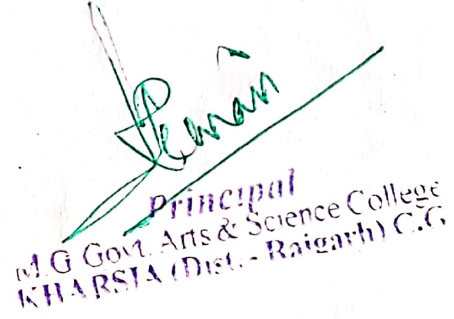 Principal
M.G Govt. Arts & Science College
KHARSIA (Dist. - Raigarh) C.G